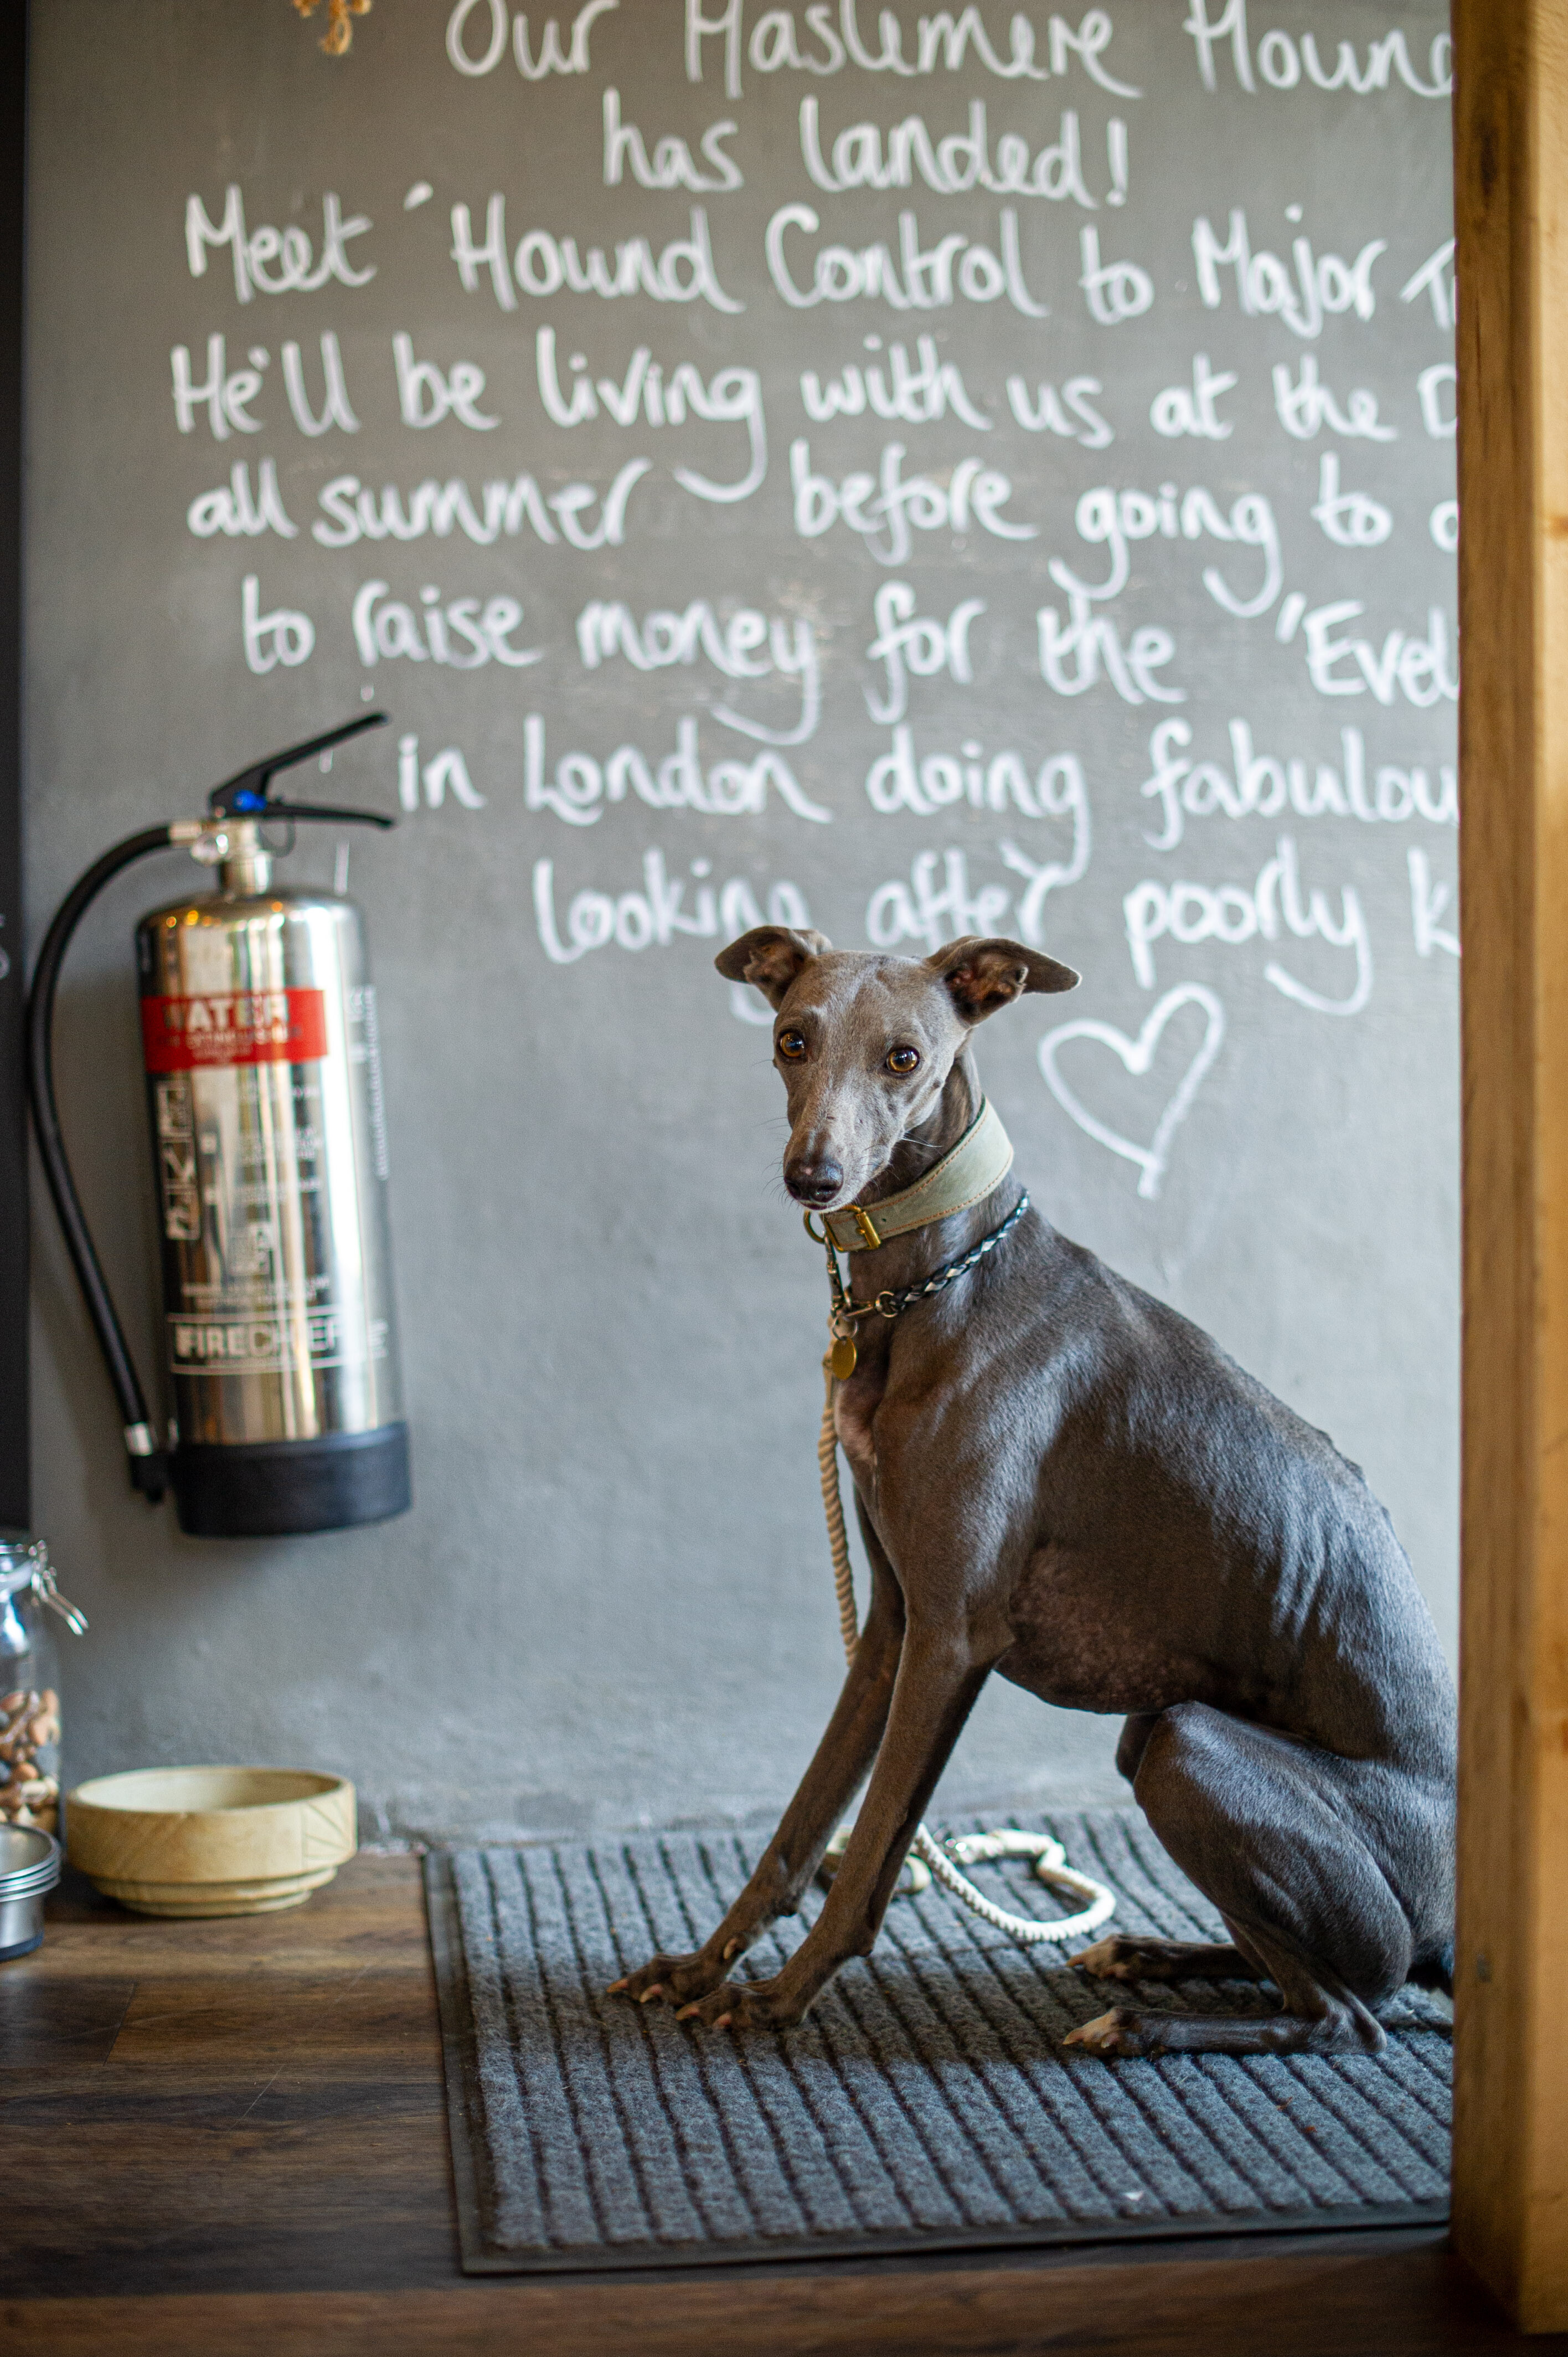 Our Haslemere Hound
has landed!
Meet 'Hound Control to Major T
He'll be living with us at the D
all summer before going to a
to raise money for the "Evel
in London doing fabulou
looking after poorly k
WATER
FIRECHIEF